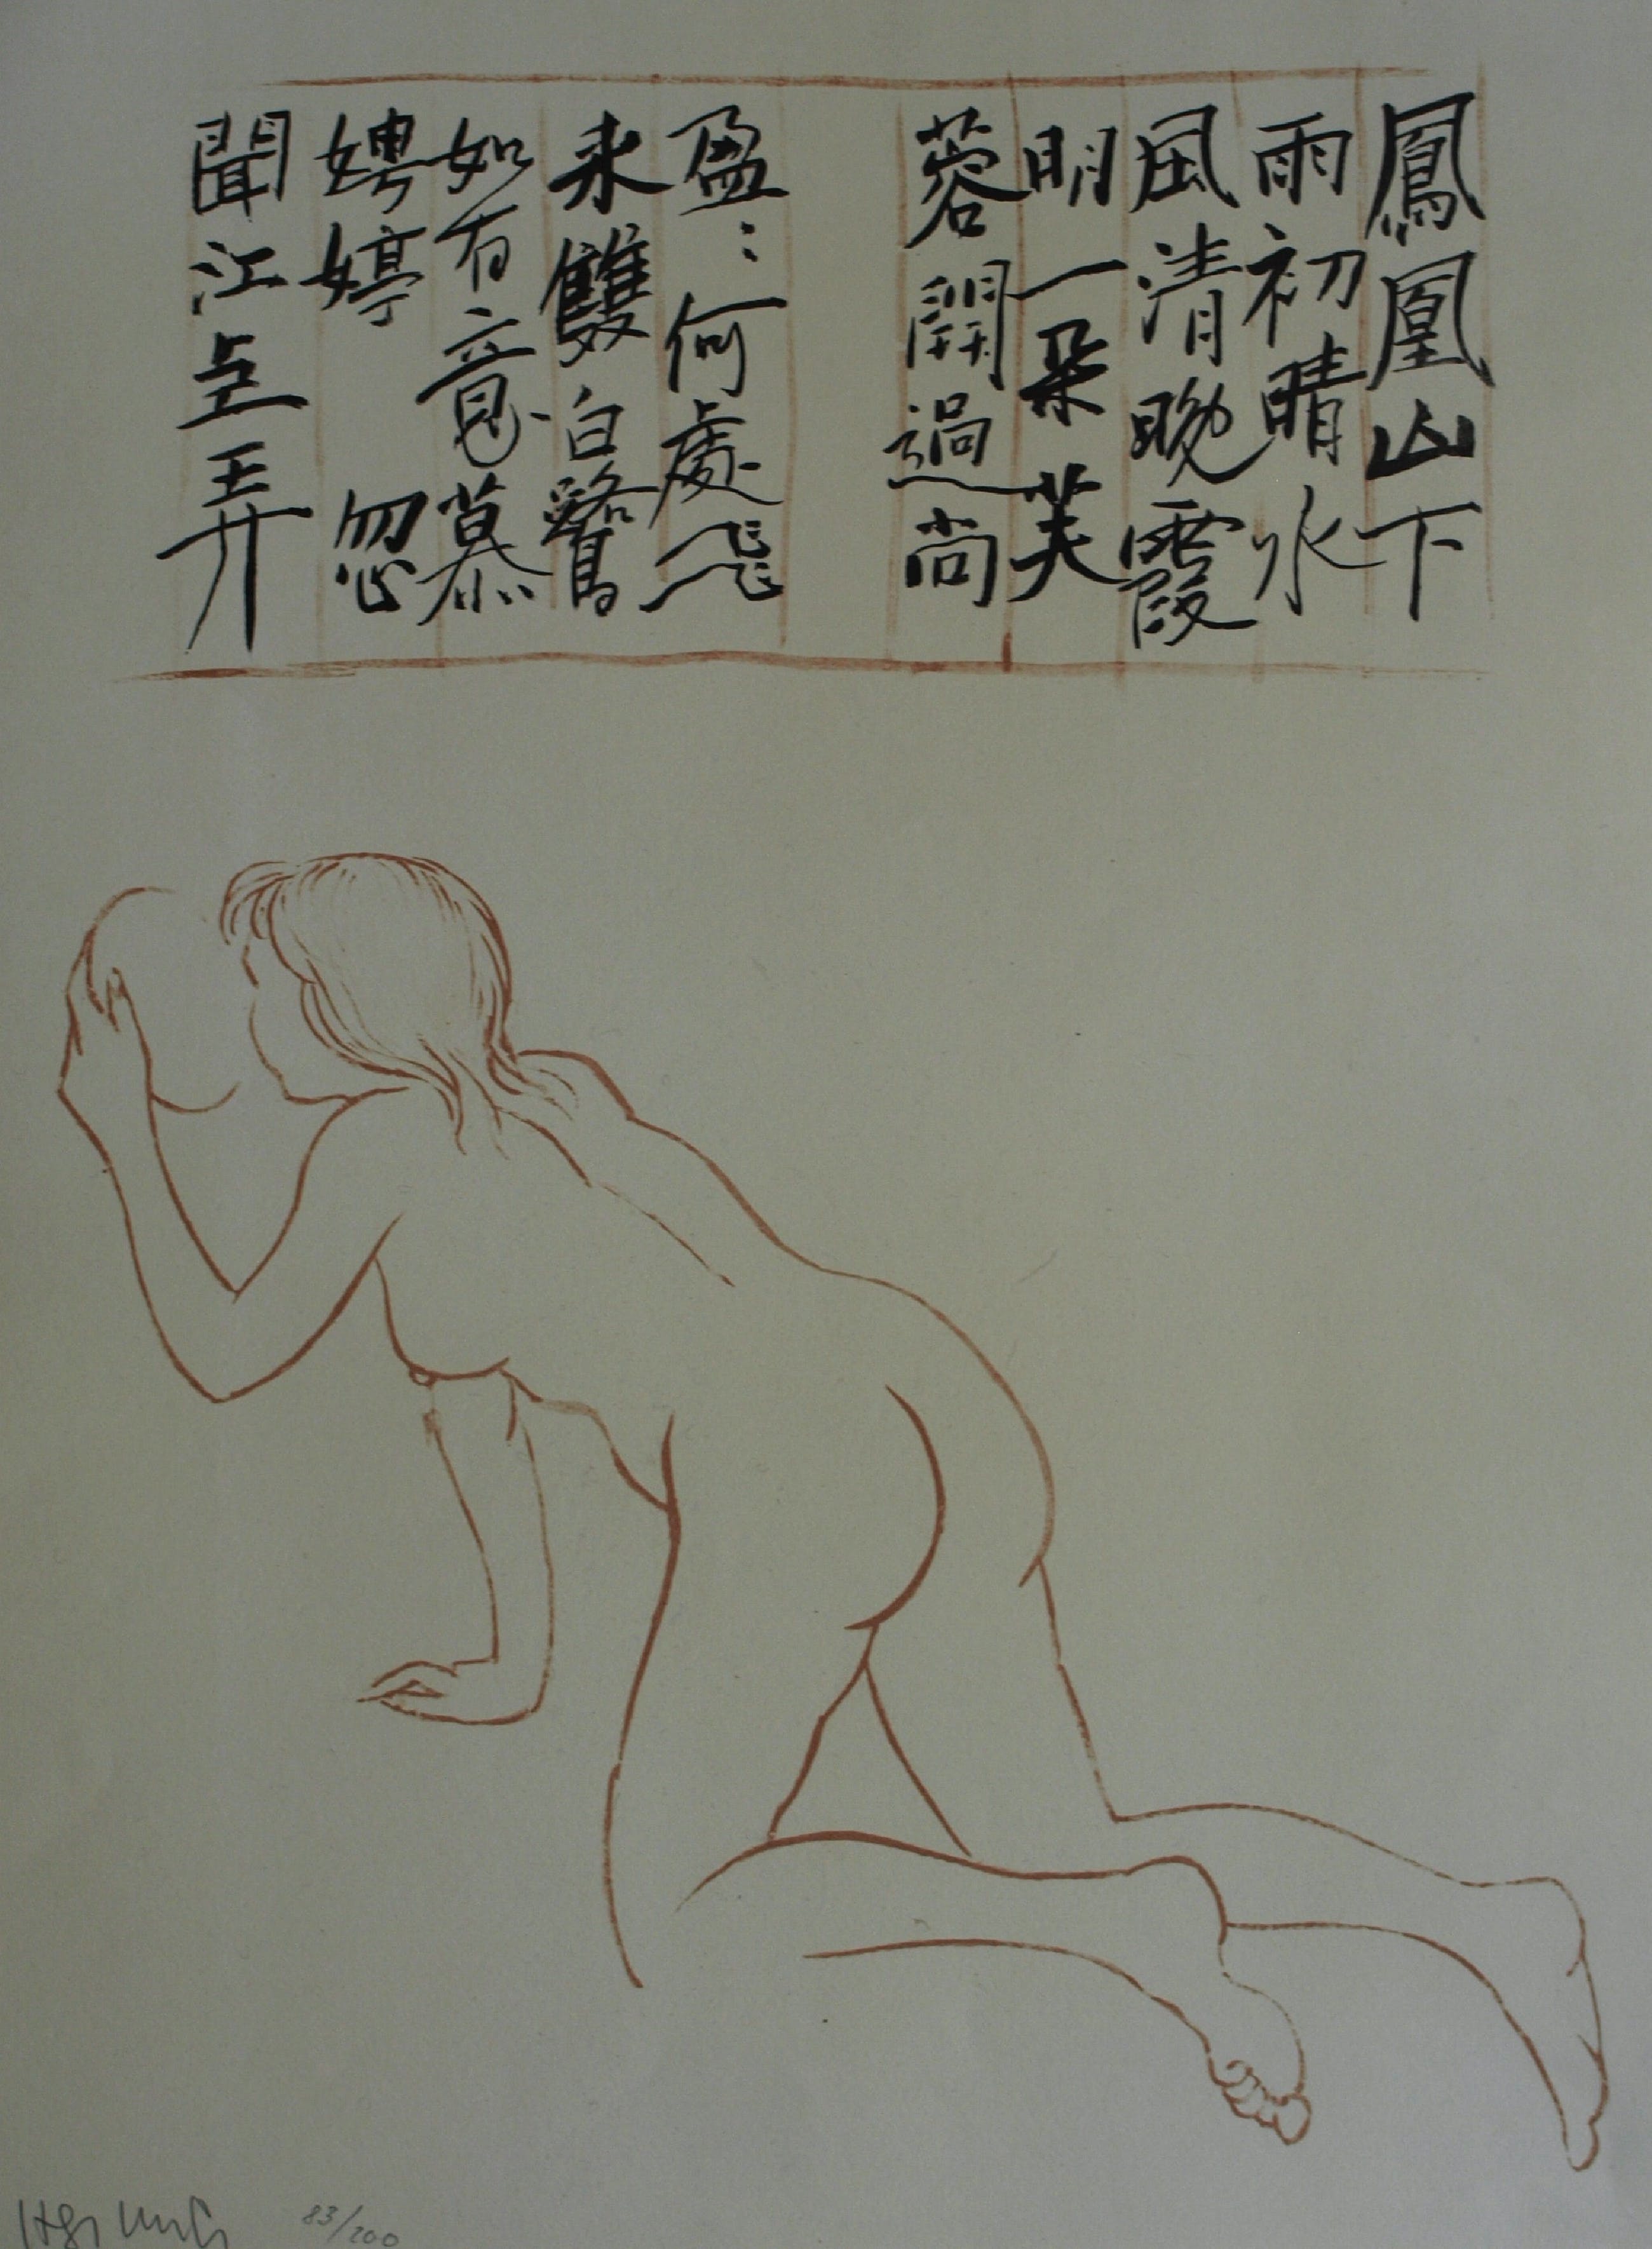 鳳凰山下
雨初晴水
風清晩霞
明一朵芙
蓉開過尚
盈::何處飛
來雙白鷺
如有意慕
娉婷 忽
聞江上弄
83/200